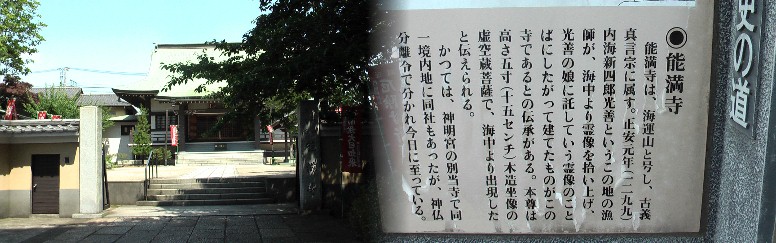 史の道
◉能満寺
能満寺は、海運山と号し、古義
真言宗に属す。正安元年(一二九九)
内海新四郎光善というこの地の漁
師が、海中より霊像を拾い上げ、
光善の娘に託していう霊像のこと
ばにしたがって建てたものがこの
寺であるとの伝承がある。本尊は
高さ五寸(十五センチ)木造坐像の
虚空蔵菩薩で、海中より出現した
と伝えられる。
かつては、神明宮の別当寺で同
一境内地に同社もあったが、神仏
分離令で分かれ今日に至っている。